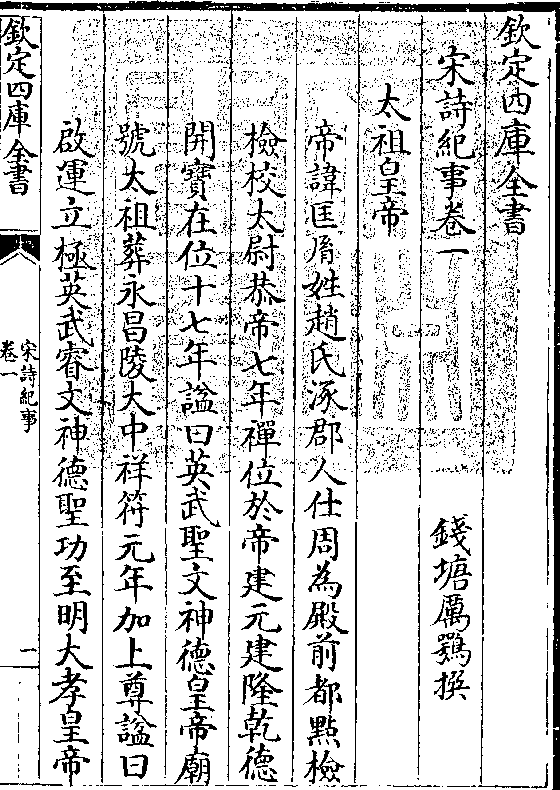 欽定四庫全書
宋詩紀事卷一
錢塘厲鶚撰
太祖皇帝
帝諱匡胤姓趙氏涿郡人仕周為殿前都點檢
檢校太尉恭帝七年禪位於帝建元建隆乾德
開寶在位十七年謚曰英武聖文神德皇帝廟
號太祖葬永昌陵大中祥符元年加上尊謚曰
啟運立極英武睿文神德聖功至明大孝皇帝
欽定四庫全書
宋詩紀事
卷一
一